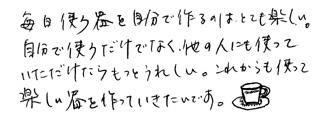 毎日使う器を自分で作るのは、とても楽しい。
自分で使うだけでなく、他の人にも使って
いただけたらもっとうれしい。これからも使って
楽しい器を作っていきたいです。